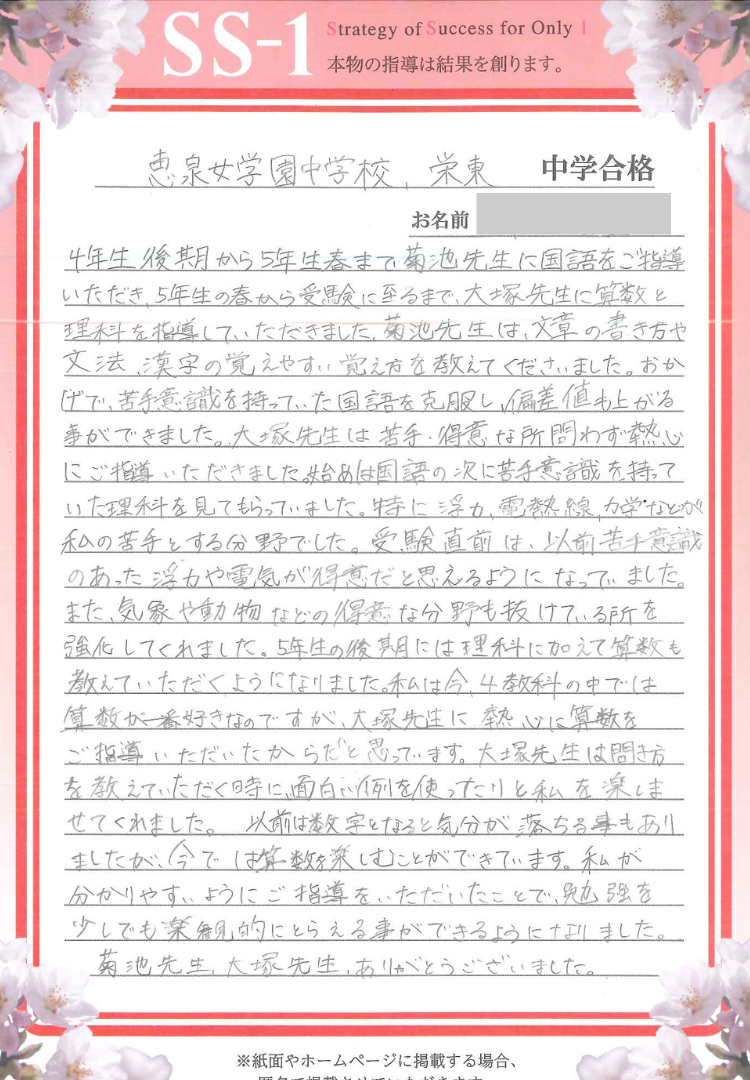 SS-1
Strategy of Success for Only 1
本物の指導は結果を創ります。
恵泉女学園中学校、栄東 中学合格
お名前
4年生後期から5年生春まで、菊池先生に国語をご指導
いただき、5年生の春から受験に至るまで、大塚先生に算数と
理科を指導していただきました。菊池先生は、文章の書き方や
文法、漢字の覚えやすい覚え方を教えてくださいました。おか
げで、苦手意識を持っていた国語を克服し、偏差値も上がる
事ができました。大塚先生は苦手・得意な所問わず熱心
にご指導いただきました。始めは国語の次に苦手意識を持って
いた理科を見てもらっていました。特に浮力、電熱線、力学などが
私の苦手とする分野でした。受験直前は、以前苦手意識
のあった浮力や電気が得意だと思えるようになっていました。
また、気象や動物などの得意な分野も抜けている所を
強化してくれました。5年生の後期には理科に加えて算数も
教えていただくようになりました。私は今、4教科の中では
算数が一番好きなのですが、大塚先生に熱心に算数を
ご指導いただいたからだと思っています。大塚先生は問き方
を教えていただく時に、面白い例を使ったりと私を楽しま
せてくれました。 以前は数字となると気分が落ちる事もあり
ましたが、今では算数を楽しむことができています。私が
分かりやすいようにご指導をいただいたことで、勉強を
少しでも楽観的にとらえる事ができるようになりました。
菊池先生、大塚先生、ありがとうございました。
※紙面やホームページに掲載する場合、